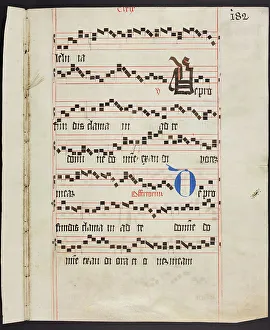 182
leluia
V De pro
fun dis clama ui ad te
domi ne do mie exau di voces
meas Offertorium De pro
fundis clama ui ad te domine do
mie exau di ora ci o nez meam